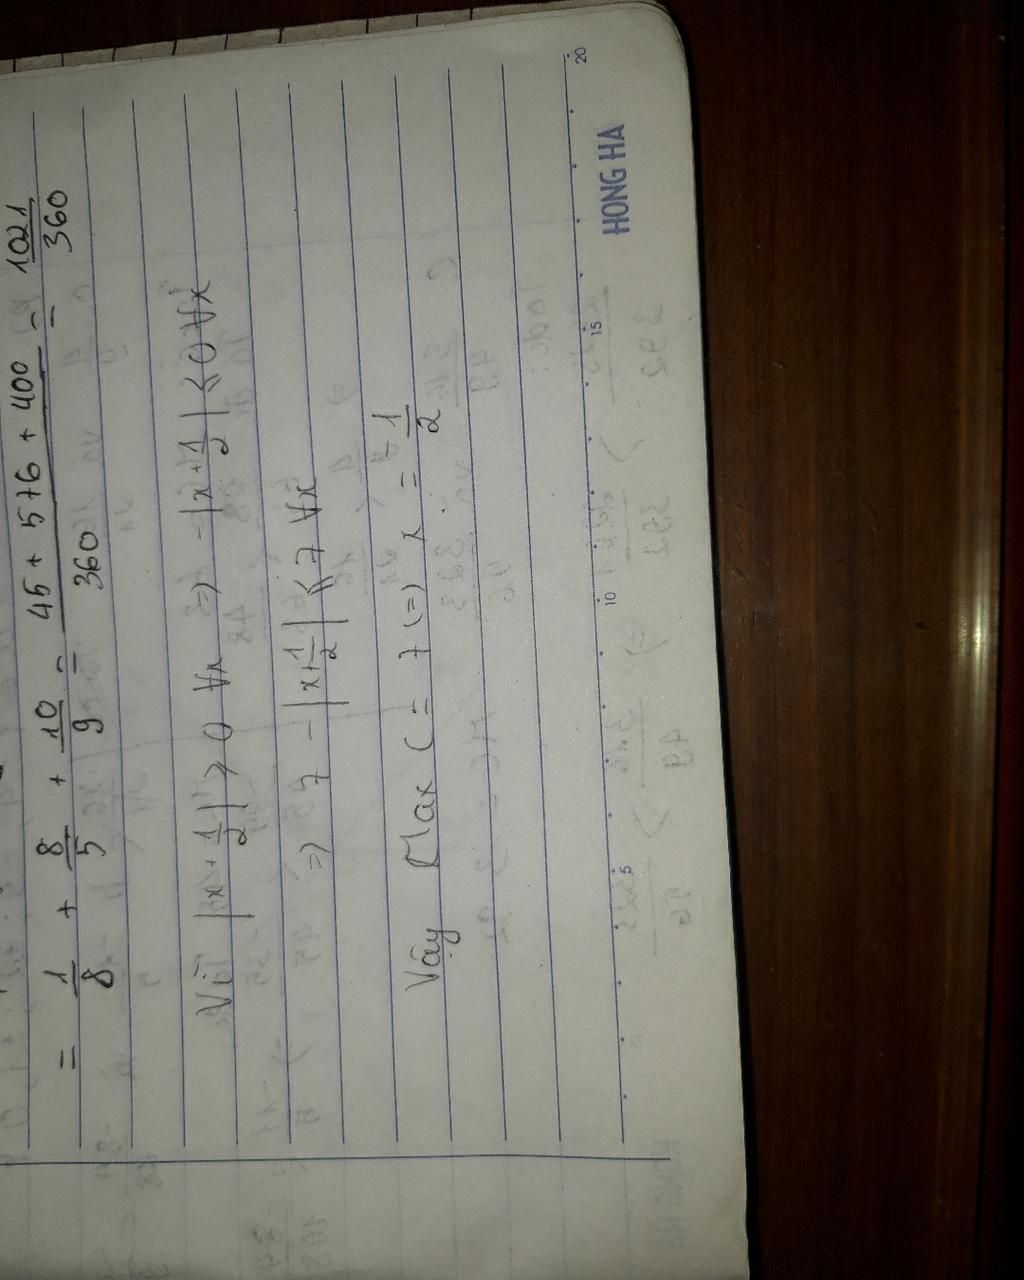 = 1/8 + 8/5 + 10/9 = (45 + 576 + 400)/360 = 1021/360
Vì |x + 1/2| ⩾ 0 ∀x => - |x + 1/2| ⩽ 0 ∀x
=> 7 - |x + 1/2| ⩽ 7 ∀x
Vậy Max C = 7 (=) x = - 1/2
5 10 15 20
HONG HA